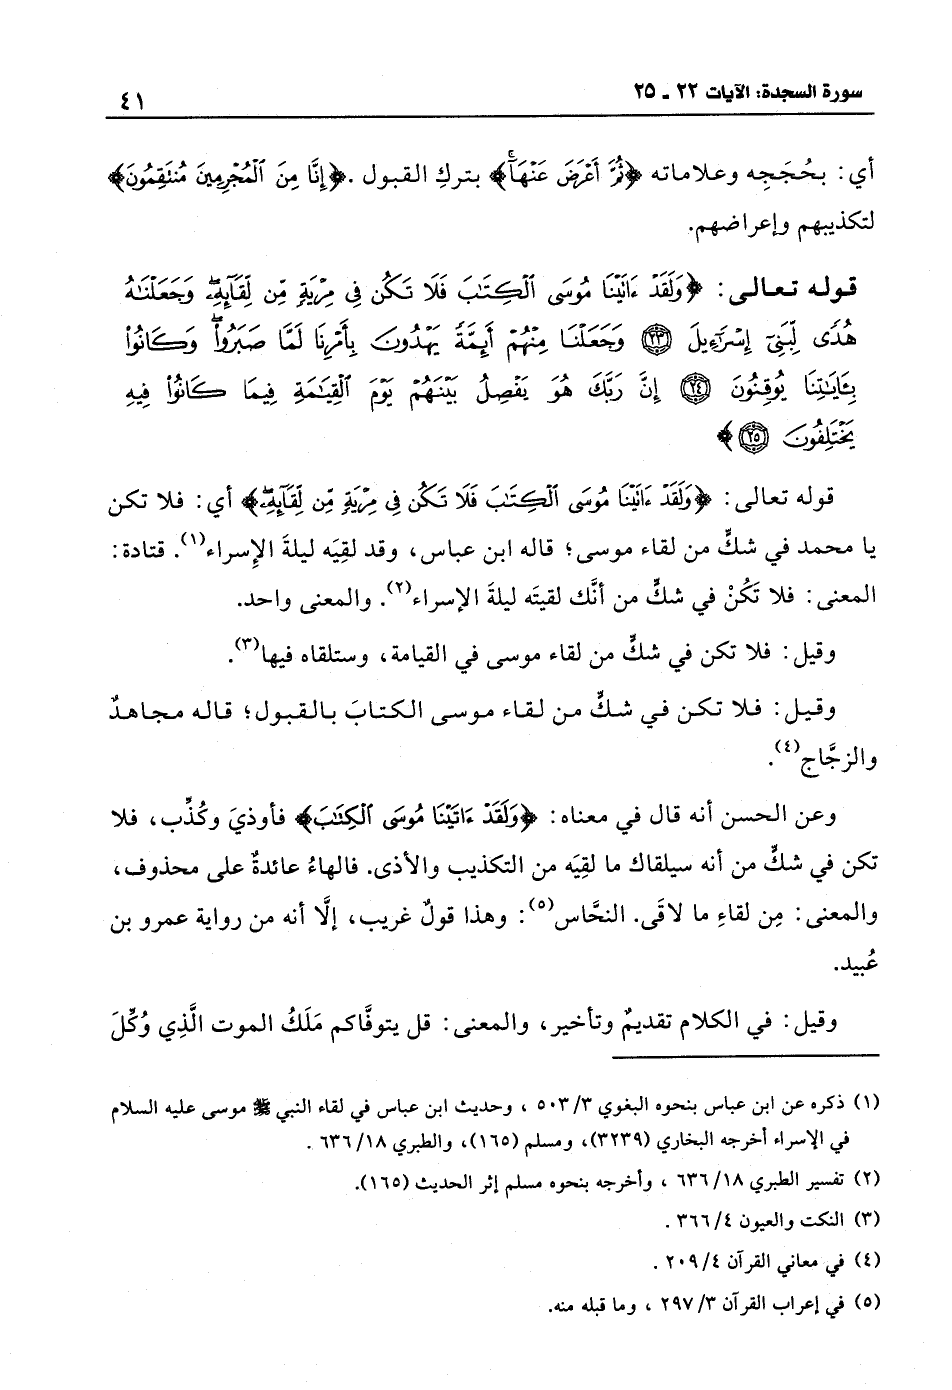 سورة السجدة: الآيات ٢٢ - ٢٥
٤١
أي: بحُجَجِه وعلاماته ﴿ثُمَّ أَعْرَضَ عَنْهَاۚ﴾ بتركِ القبول. ﴿إِنَّا مِنَ ٱلْمُجْرِمِينَ مُنتَقِمُونَ﴾
لتكذيبهم وإعراضهم.
قوله تعالى: ﴿وَلَقَدْ ءَاتَيْنَا مُوسَى ٱلْكِتَٰبَ فَلَا تَكُن فِى مِرْيَةٍ مِّن لِّقَآئِهِۦۖ وَجَعَلْنَٰهُ
هُدًى لِّبَنِىٓ إِسْرَٰٓءِيلَ ﴿٢٣﴾ وَجَعَلْنَا مِنْهُمْ أَئِمَّةً يَهْدُونَ بِأَمْرِنَا لَمَّا صَبَرُواْۖ وَكَانُواْ
بِـَٔايَٰتِنَا يُوقِنُونَ ﴿٢٤﴾ إِنَّ رَبَّكَ هُوَ يَفْصِلُ بَيْنَهُمْ يَوْمَ ٱلْقِيَٰمَةِ فِيمَا كَانُواْ فِيهِ
يَخْتَلِفُونَ ﴿٢٥﴾﴾
قوله تعالى: ﴿وَلَقَدْ ءَاتَيْنَا مُوسَى ٱلْكِتَٰبَ فَلَا تَكُن فِى مِرْيَةٍ مِّن لِّقَآئِهِۦۖ﴾ أي: فلا تكن
يا محمد في شكٍّ من لقاء موسى؛ قاله ابن عباس، وقد لقِيَه ليلةَ الإسراء(١). قتادة:
المعنى: فلا تَكُنْ في شكٍّ من أنَّك لقيتَه ليلةَ الإسراء(٢). والمعنى واحد.
وقيل: فلا تكن في شكٍّ من لقاء موسى في القيامة، وستلقاه فيها(٣).
وقيل: فلا تكن في شكٍّ من لقاء موسى الكتابَ بالقبول؛ قاله مجاهدٌ
والزجَّاج(٤).
وعن الحسن أنه قال في معناه: ﴿وَلَقَدْ ءَاتَيْنَا مُوسَى ٱلْكِتَٰبَ﴾ فأوذيَ وكُذِّب، فلا
تكن في شكٍّ من أنه سيلقاك ما لقِيَه من التكذيب والأذى. فالهاءُ عائدةٌ على محذوف،
والمعنى: مِن لقاءِ ما لاقَى. النحَّاس(٥): وهذا قولٌ غريب، إلَّا أنه من رواية عمرو بن
عُبيد.
وقيل: في الكلام تقديمٌ وتأخير، والمعنى: قل يتوفَّاكم مَلَكُ الموت الَّذِي وُكِّلَ
(١) ذكره عن ابن عباس بنحوه البغوي ٥٠٣/٣ ، وحديث ابن عباس في لقاء النبي ﷺ موسى عليه السلام
في الإسراء أخرجه البخاري (٣٢٣٩)، ومسلم (١٦٥)، والطبري ٦٣٦/١٨ .
(٢) تفسير الطبري ٦٣٦/١٨ ، وأخرجه بنحوه مسلم إثر الحديث (١٦٥).
(٣) النكت والعيون ٣٦٦/٤ .
(٤) في معاني القرآن ٢٠٩/٤ .
(٥) في إعراب القرآن ٢٩٧/٣ ، وما قبله منه.